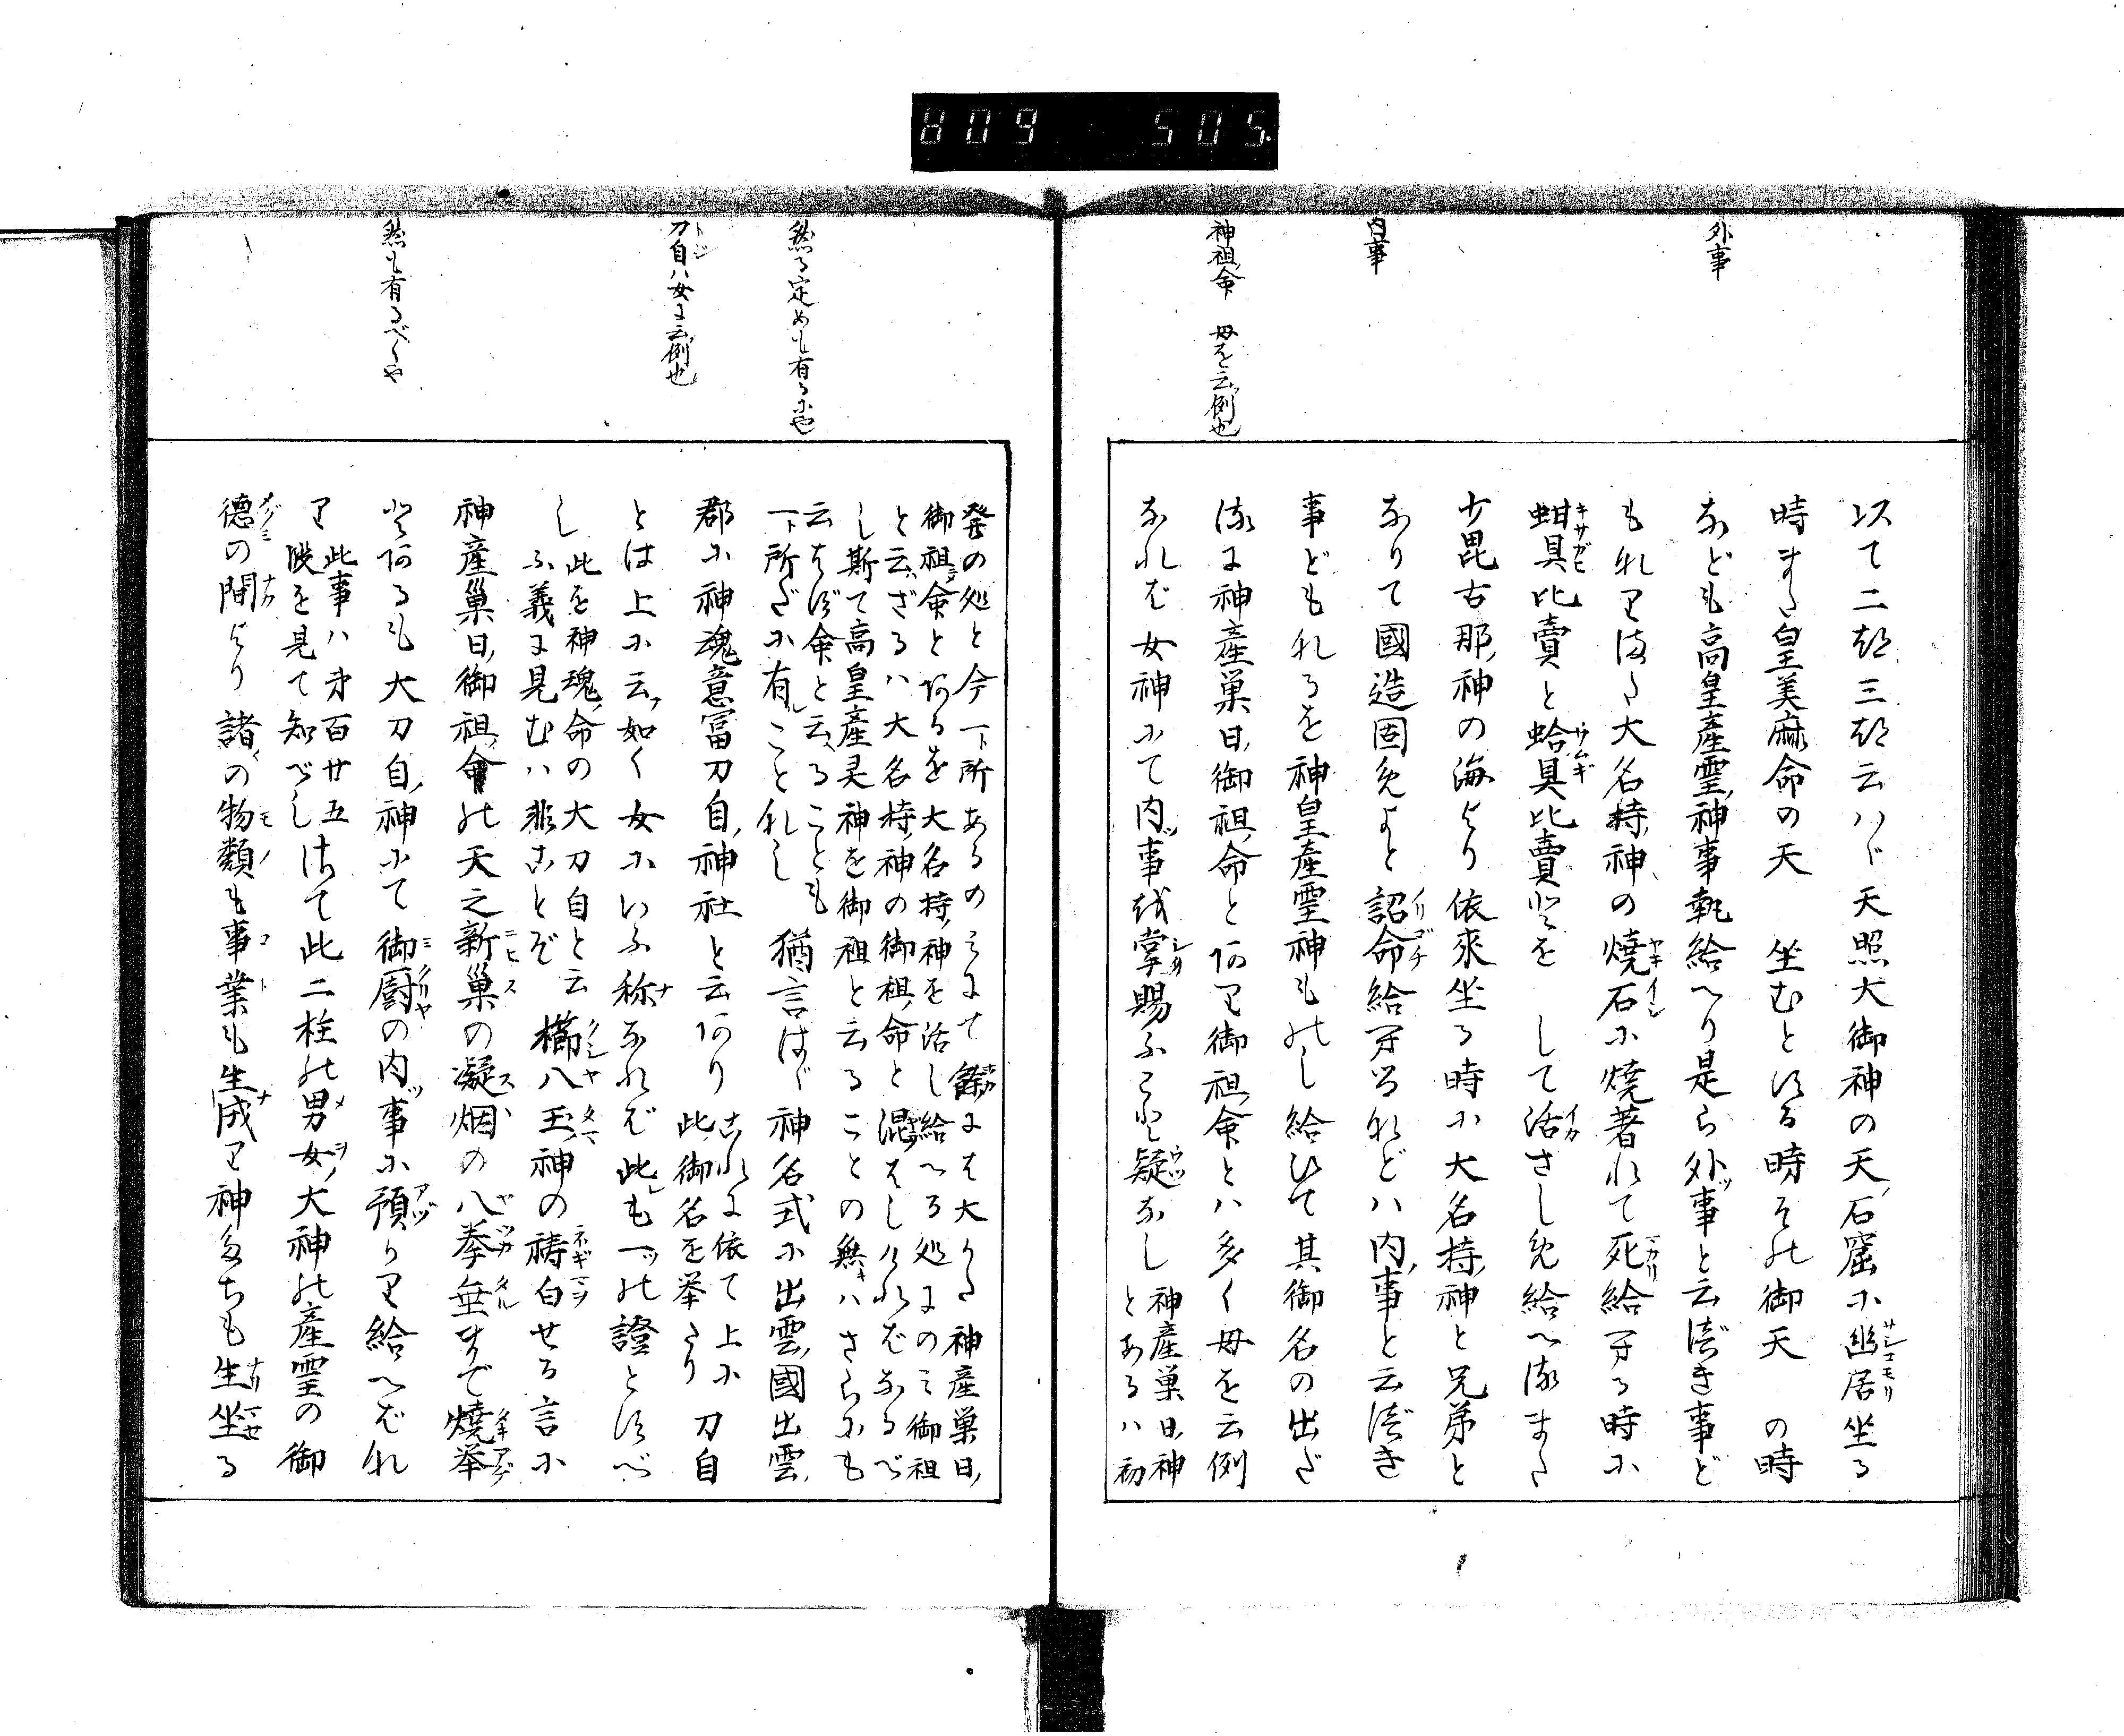 809 505.
外事
内事
神祖命 母を云例也
以て二つ三つ云ハヾ天照大御神の天石窟に幽居坐る
時また皇美麻命の天 坐むとする時その御天 の時
なども高皇産霊神事執給へり是ら外事と云べき事ど
もなりまた大名持神の焼石に焼著れて死給する時に
蚶貝比賣と蛤貝比賣とを して活さしめ給へるまた
少毘古那神の海より依來坐る時に大名持神と兄弟と
なりて國造固めよと詔命給するなどハ内事と云べき
事どもなるを神皇産霊神ものし給ひて其御名の出だ
るに神産巣日御祖命とあり御祖命とハ多く母を云例
なれば女神にて内事を掌賜ふこと疑なし
神産巣日神
とあるハ初
発の処と今一所あるのみにて餘には大かた神産巣日
御祖命とあるを大名持神を活し給へる処にのみ御祖
と云ざるハ大名持神の御祖命と混はしければなるべ
し斯て高皇産灵神を御祖と云ることの無ハさらにも
云はず命と云ることも
一所だに有ことなし
猶言はゞ神名式に出雲國出雲
郡に神魂意冨刀自神社と云あり
これに依て上に
此御名を挙たり
刀自
とは上に云如く女にいふ称なれば此も一の證とすべ
し
此を神魂命の大刀自と云
ふ義に見むハ非ことぞ
櫛八玉神の祷白せる言に
神産巣日御祖命の天之新巣の凝烟の八拳垂まで燒挙
とあるも大刀自神にて御厨の内事に預りり給へばな
り
此事ハ才百廿五
段を見て知べし
さて此二柱の男女大神の産霊の御
德の間より諸の物類も事業も生成り神たちも生坐る
然る定めも有るにや
刀自ハ女に云例也
然も有るべくや